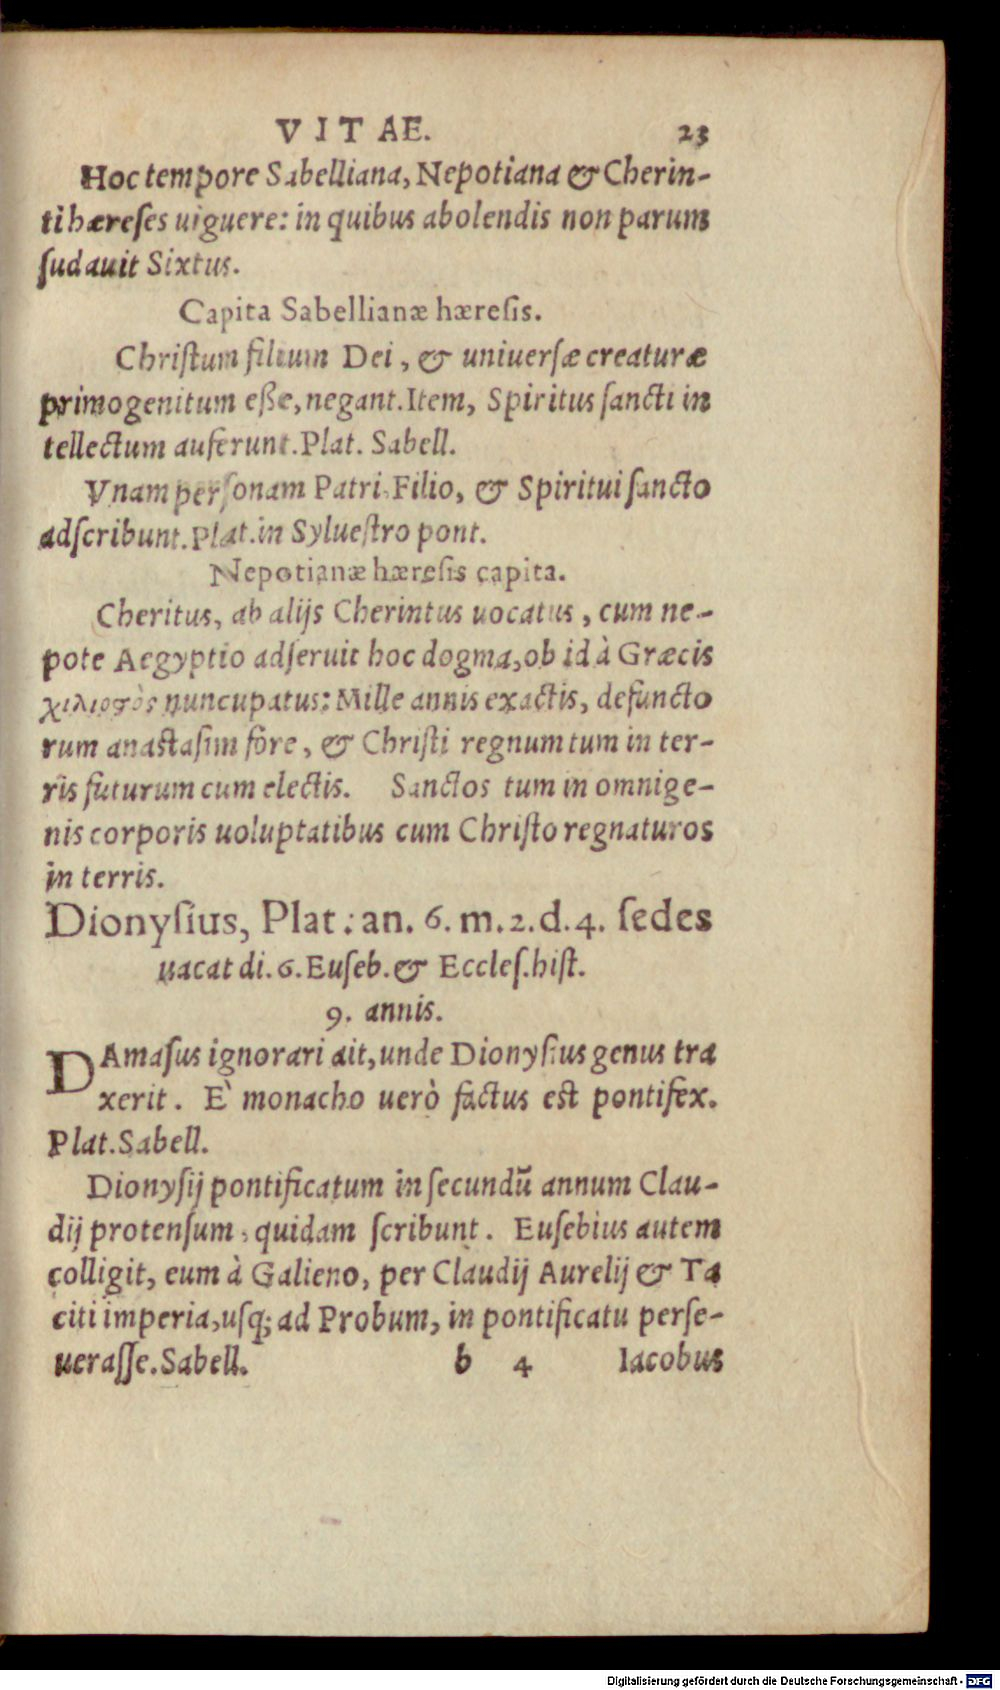 VITAE. 23
Hoc tempore Sabelliana, Nepotiana & Cherin-
ti hæreſes uiguere: in quibus abolendis non parum
ſudauit Sixtus.
Capita Sabellianæ hæreſis.
Chriſtum filium Dei, & uniuerſæ creaturæ
primogenitum eſſe, negant. Item, Spiritus ſancti in
tellectum auferunt. Plat. Sabell.
Vnam perſonam Patri, Filio, & Spiritui ſancto
adſcribunt. Plat. in Sylueſtro pont.
Nepotianæ hæreſis capita.
Cheritus, ab alijs Cherintus uocatus, cum ne-
pote Aegyptio adſeruit hoc dogma, ob id à Græcis
χιλιοστὸς nuncupatus: Mille annis exactis, defuncto
rum anastaſim fore, & Chriſti regnum tum in ter-
ris futurum cum electis. Sanctos tum in omnige-
nis corporis uoluptatibus cum Chriſto regnaturos
in terris.
Dionyſius, Plat: an. 6. m. 2. d. 4. ſedes
uacat di. 6. Euſeb. & Eccleſ. hiſt.
9. annis.
DAmaſus ignorari ait, unde Dionyſius genus tra
xerit. È monacho uerò factus est pontifex.
Plat. Sabell.
Dionyſij pontificatum in ſecundū annum Clau-
dij protenſum, quidam ſcribunt. Euſebius autem
colligit, eum à Galieno, per Claudij Aurelij & Ta
citi imperia, uſq; ad Probum, in pontificatu perſe-
ueraſſe. Sabell. b 4 Iacobus
Digitalisierung gefördert durch die Deutsche Forschungsgemeinschaft - DFG